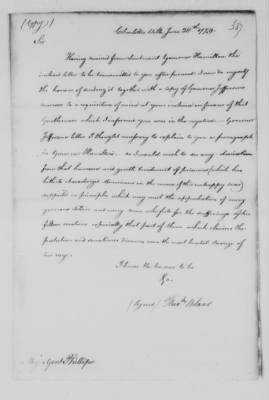 (Copy)
Charlottes Ville June 20th 1779
Sir
Having received from Lieutenant Governor Hamilton the
inclosed letter to be transmitted to you after perusal I now do myself
the honour of sending it together with a Copy of Governor Jefferson's
answer to a requisition of mine at your instance in favour of that
Gentleman which I informed you was in the negative — Governor
Jefferson's letter I thought necessary to explain to you a paragraph
in Governor Hamilton's. as I would wish to see any deviation
from that humane and gentle treatment of Prisoners (which has
hitherto characterized Americans in the course of this unhappy war)
supported on principles which may meet the approbation of every
generous nation and every man who feels for the sufferings of his
fellow creatures especially that part of them which claims the
protection and sometimes disarms even the most hostile Savage of
his
I have the honour to be
&c.
(Signed) Theok. Bland
Major Genl. Phillips